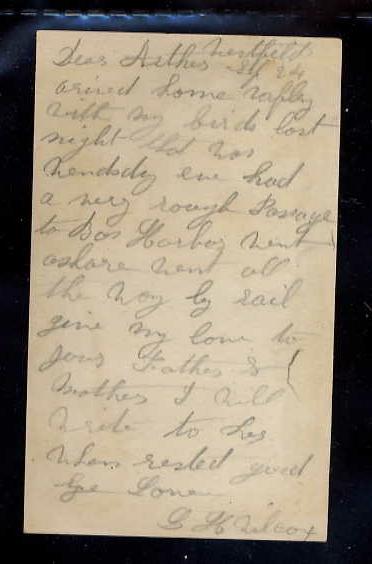 Westfield
Dear Arther St 24
arived home safley
with my birds last
night that was
Wendsdy eve had
a very rough Passage
to Bar Harbor went
ashare went all
the way by rail
give my love to
your Father &
Mother I will
write to her
when rested good
bye Love
L H Wilcox